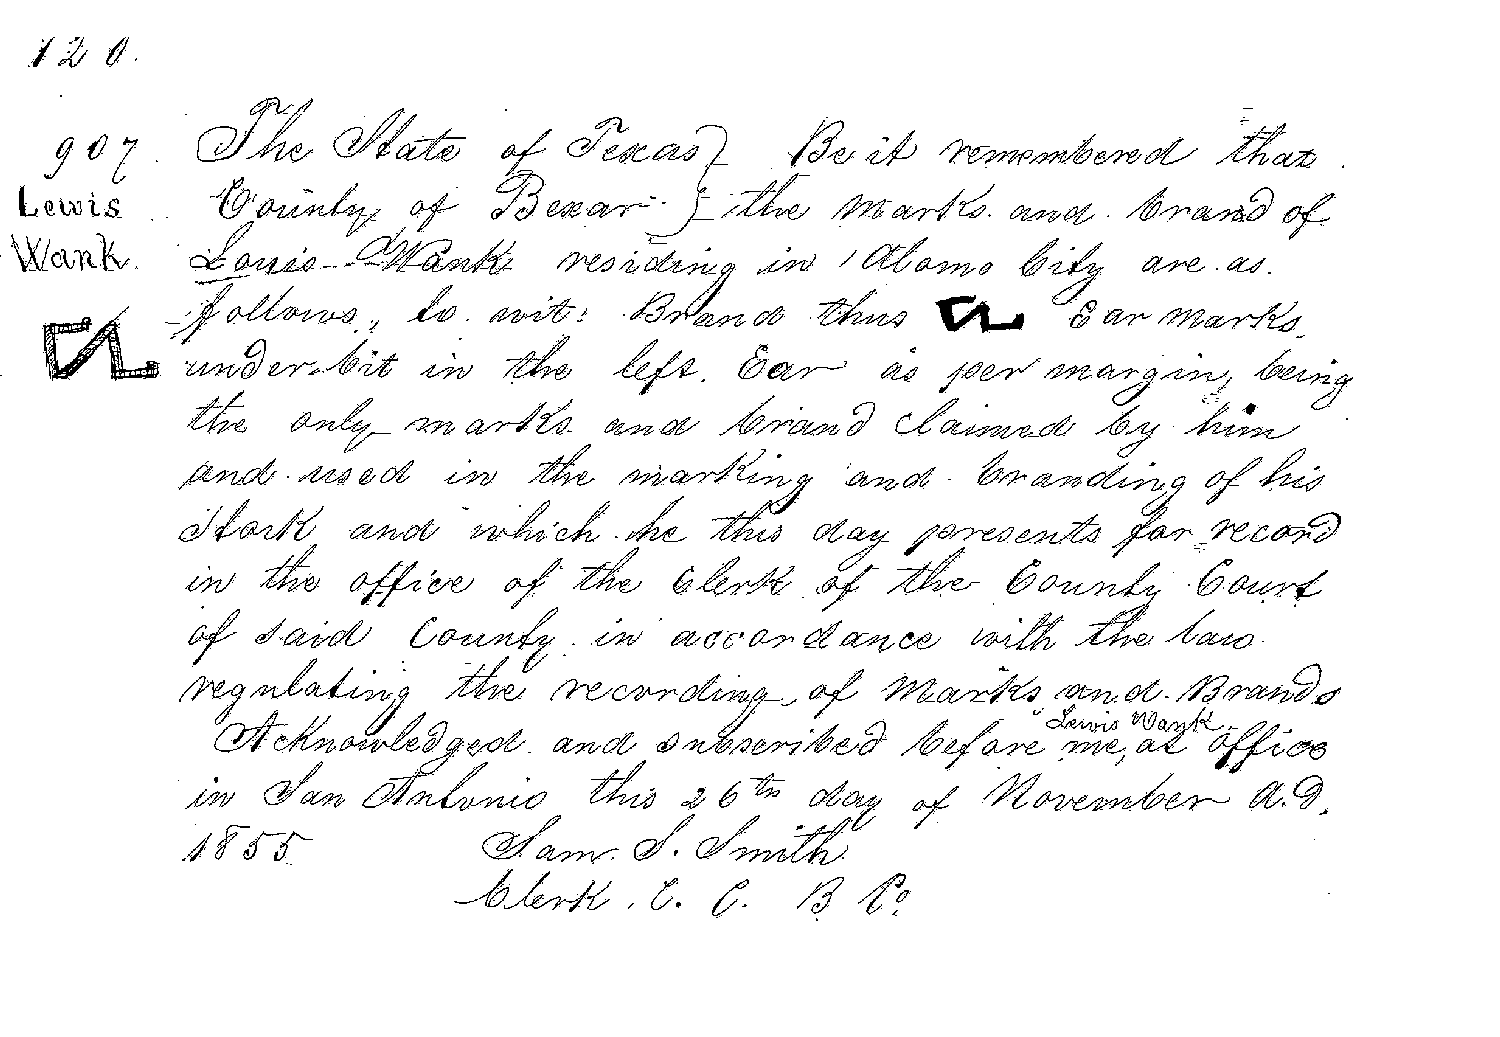 120.
907.
Lewis
Wank.
The State of Texas } Be it remembered that
County of Bexar } the marks and brand of
Louis Wank residing in Alamo City are as
follows, to wit: Brand thus Ear marks,
under-bit in the left Ear as per margin, being
the only marks and brand claimed by him
and used in the marking and branding of his
Stock and which he this day presents for record
in the office of the Clerk of the County Court
of said County in accordance with the law
regulating the recording of Marks and Brands
Lewis Wank
Acknowledged and subscribed before me, at office
in San Antonio this 26th day of November A.D.
1855 Sam. S. Smith
Clerk. C. C. B Co.